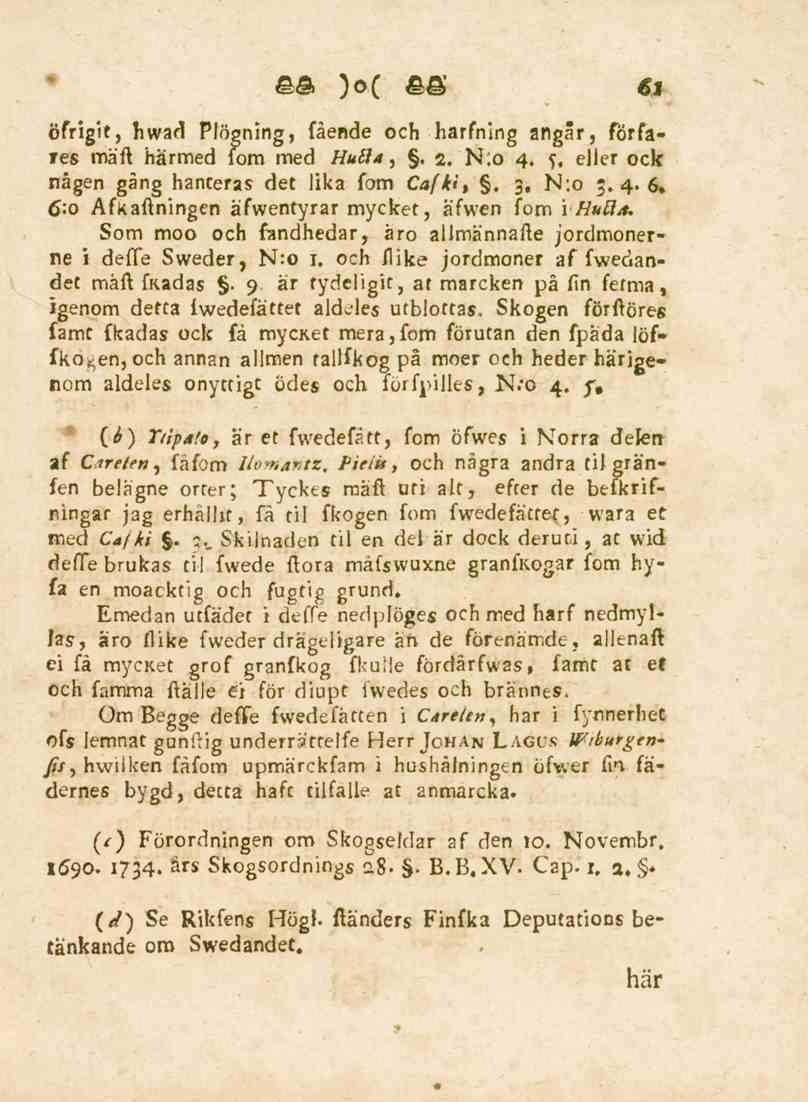 )o( 61
öfrigit, hwad Plögning, fående och harfning angår, förfa-
res mäſt härmed ſom med Hutta, §. 2. N:o 4. 5. eller ock
någen gång hanteras det lika ſom Caſki, §. 3. N:o 3. 4. 6.
6:o Afkaſtningen äfwentyrar mycket, äfwen ſom i Hutta.
Som moo och ſandhedar, äro allmännaſte jordmoner-
ne i deſſe Sweder, N:o 1. och ſlike jordmoner af ſwedan-
det mäſt ſkadas §. 9. är tydeligit, at marcken på ſin fetma,
igenom detta ſwedeſättet aldeles utblottas. Skogen förſtöres
ſamt ſkadas ock få mycket mera, ſom förutan den ſpäda löf-
ſkogen, och annan allmen tallſkog på moer och heder härige-
nom aldeles onyttigt ödes och förſpilles, N:o 4. 5.
(b) Ttipato, är et ſwedeſätt, ſom öfwes i Norra delen
af Carelen, ſåſom Ilomantz, Pielis, och några andra til grän-
ſen belägne orter; Tyckes mäſt uti alt, efter de beſkrif-
ningar jag erhållit, få til ſkogen ſom ſwedeſättet, wara et
med Caſki §. 3. Skilnaden til en del är dock deruti, at wid
deſſe brukas til ſwede ſtora måſswuxne granſkogar ſom hy-
ſa en moacktig och fugtig grund.
Emedan utſädet i deſſe nedplöges och med harf nedmyl-
las, äro ſlike ſweder drägeligare än de förenämde, allenaſt
ei få mycket grof granſkog ſkulle fördärfwas, ſamt at et
och ſamma ſtälle ei för diupt ſwedes och brännes.
Om Begge deſſe ſwedeſätten i Carelen, har i ſynnerhet
oſs lemnat gunſtig underrättelſe Herr Johan Lagus Wiburgen-
ſis, hwilken ſåſom upmärckſam i hushålningen öfwer ſin fä-
dernes bygd, detta haft tilfälle at anmärcka.
(c) Förordningen om Skogseldar af den 10. Novembr.
1690. 1734. års Skogsordnings 28. §. B. B. XV. Cap. 1. 2. §.
(d) Se Rikſens Högl. ſtänders Finſka Deputations be-
tänkande om Swedandet.
här